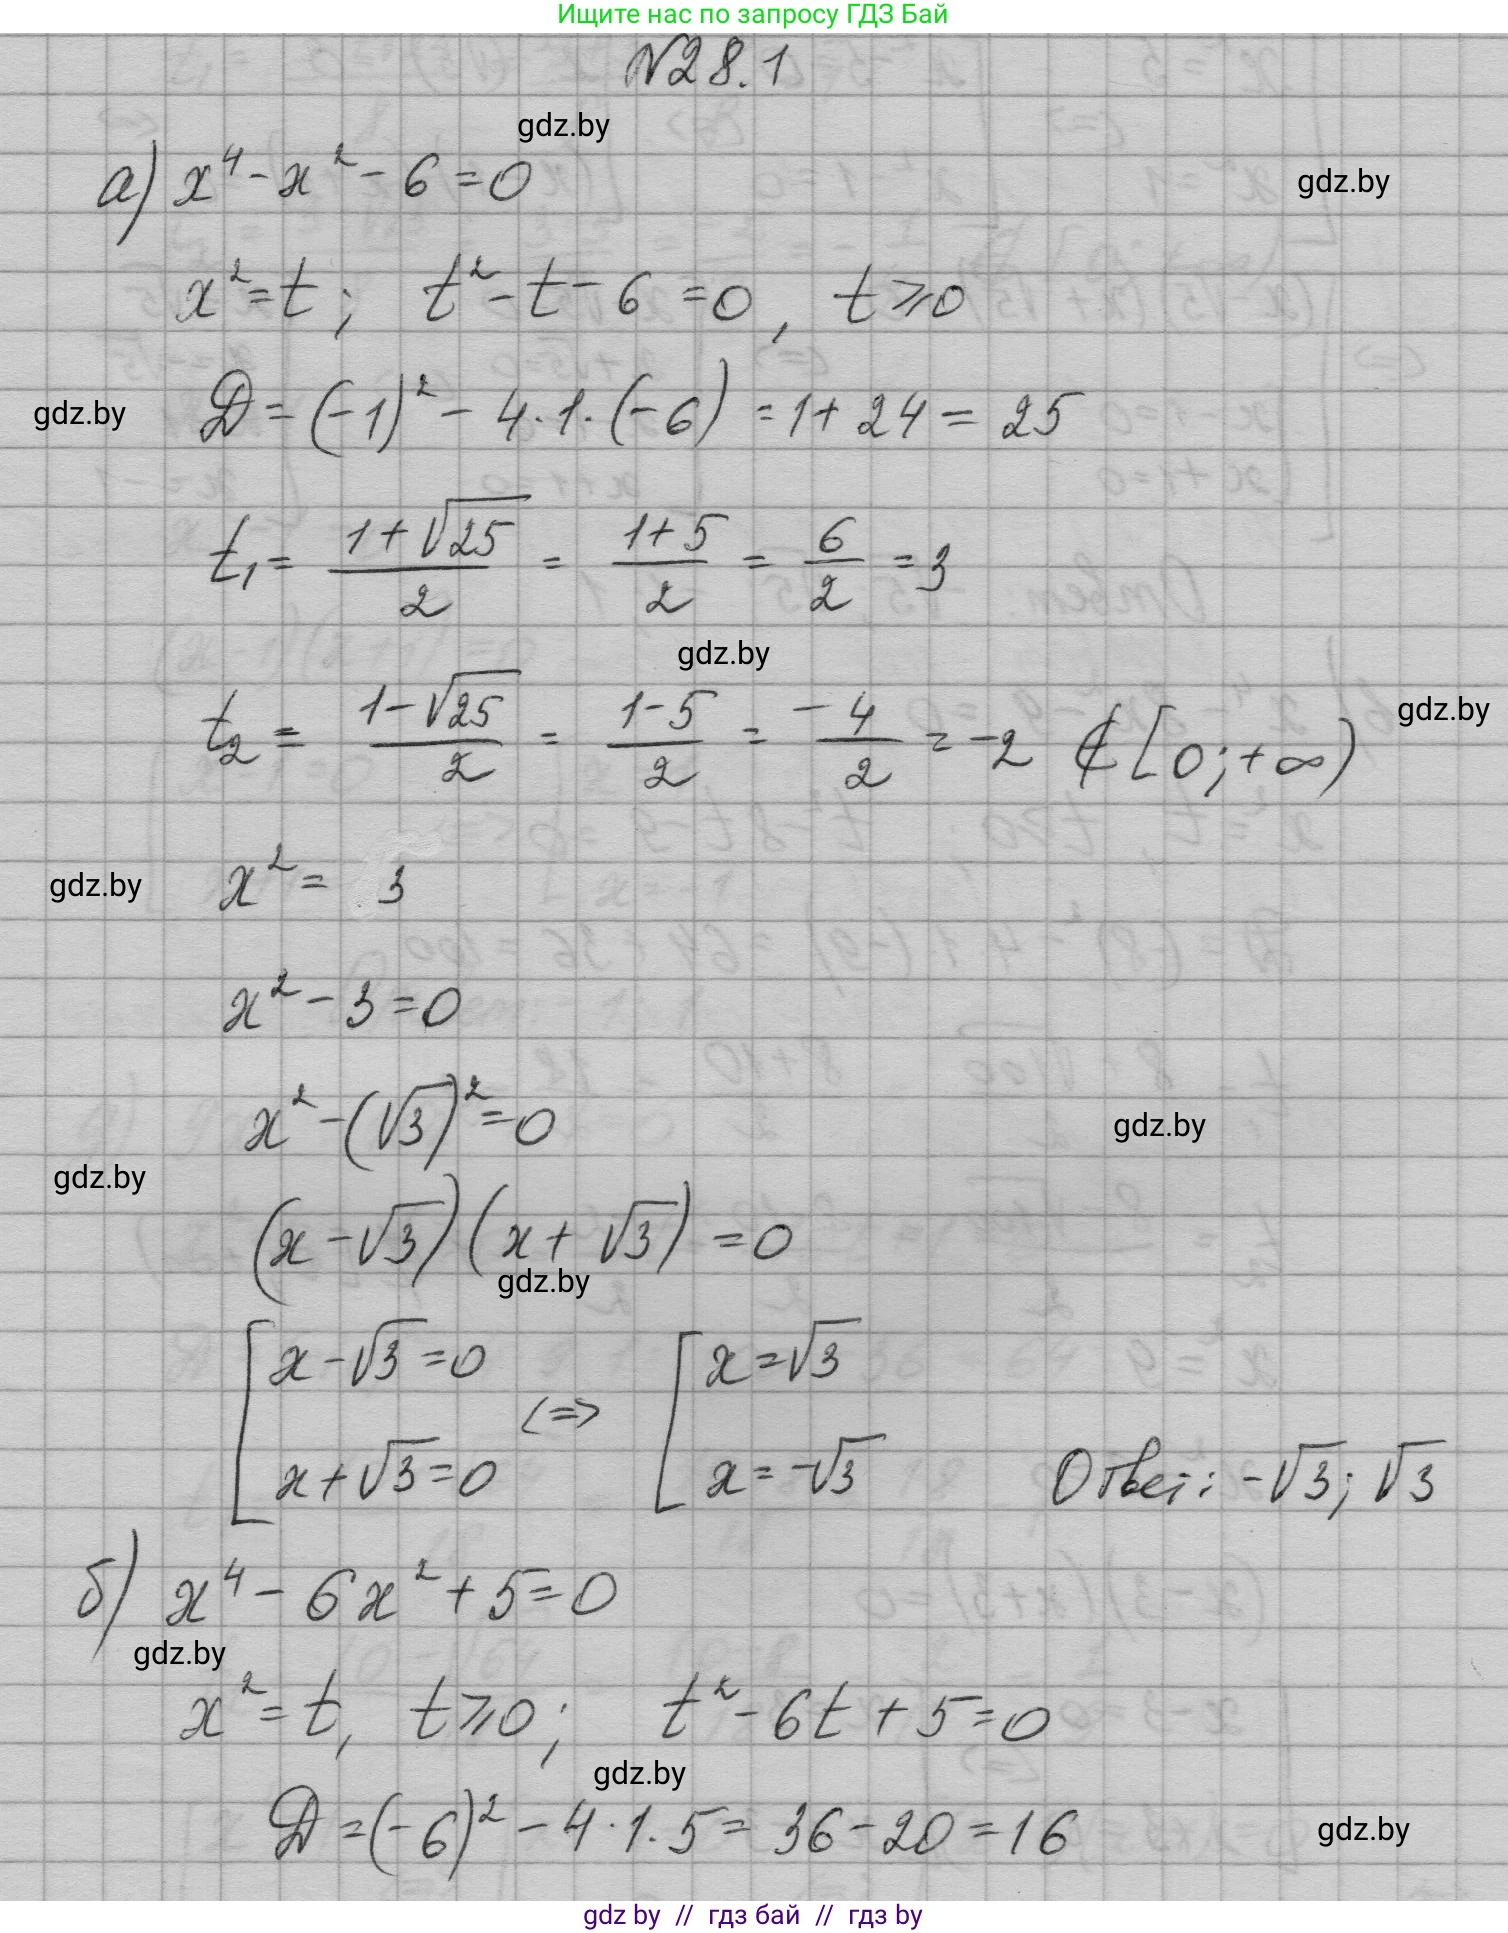 Ищите нас по запросу ГДЗ Бай
№28.1
gdz.by
а) x⁴ - x² - 6 = 0
gdz.by
x² = t; t² - t - 6 = 0, t ⩾ 0
gdz.by
D = (-1)² - 4·1·(-6) = 1 + 24 = 25
t₁ = (1+√25)/2 = (1+5)/2 = 6/2 = 3
gdz.by
t₂ = (1-√25)/2 = (1-5)/2 = -4/2 = -2 ∉ [0; +∞)
gdz.by
x² = 3
gdz.by
x² - 3 = 0
x² - (√3)² = 0
gdz.by
gdz.by
(x - √3)(x + √3) = 0
gdz.by
[ x - √3 = 0 <=> [ x = √3
[ x + √3 = 0 [ x = -√3 Ответ: -√3; √3
б) x⁴ - 6x² + 5 = 0
gdz.by
x² = t, t ⩾ 0; t² - 6t + 5 = 0
gdz.by
D = (-6)² - 4·1·5 = 36 - 20 = 16
gdz.by
gdz by // гдз бай // гдз by